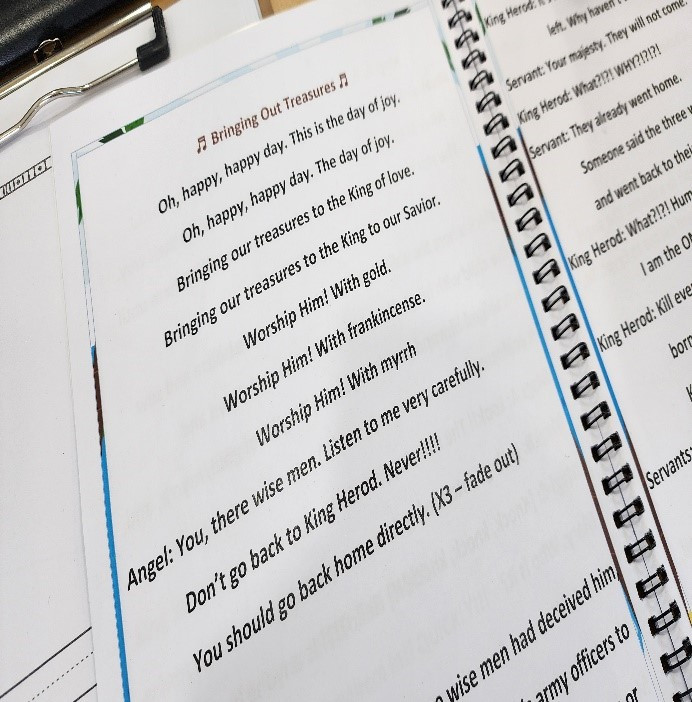 ♫ Bringing Out Treasures ♫
Oh, happy, happy day. This is the day of joy.
Oh, happy, happy day. The day of joy.
Bringing our treasures to the King of love.
Bringing our treasures to the King to our Savior.
Worship Him! With gold.
Worship Him! With frankincense.
Worship Him! With myrrh
Angel: You, there wise men. Listen to me very carefully.
Don't go back to King Herod. Never!!!!
You should go back home directly. (X3 – fade out)
wise men had deceived him,
army officers to
or
King Herod:
left. Why haven't
Servant: Your majesty. They will not come.
King Herod: What?!?! WHY?!?!?!
Servant: They already went home.
Someone said the three
and went back to their
King Herod: What?!?!
I am the
King Herod: Kill
born
Servants: